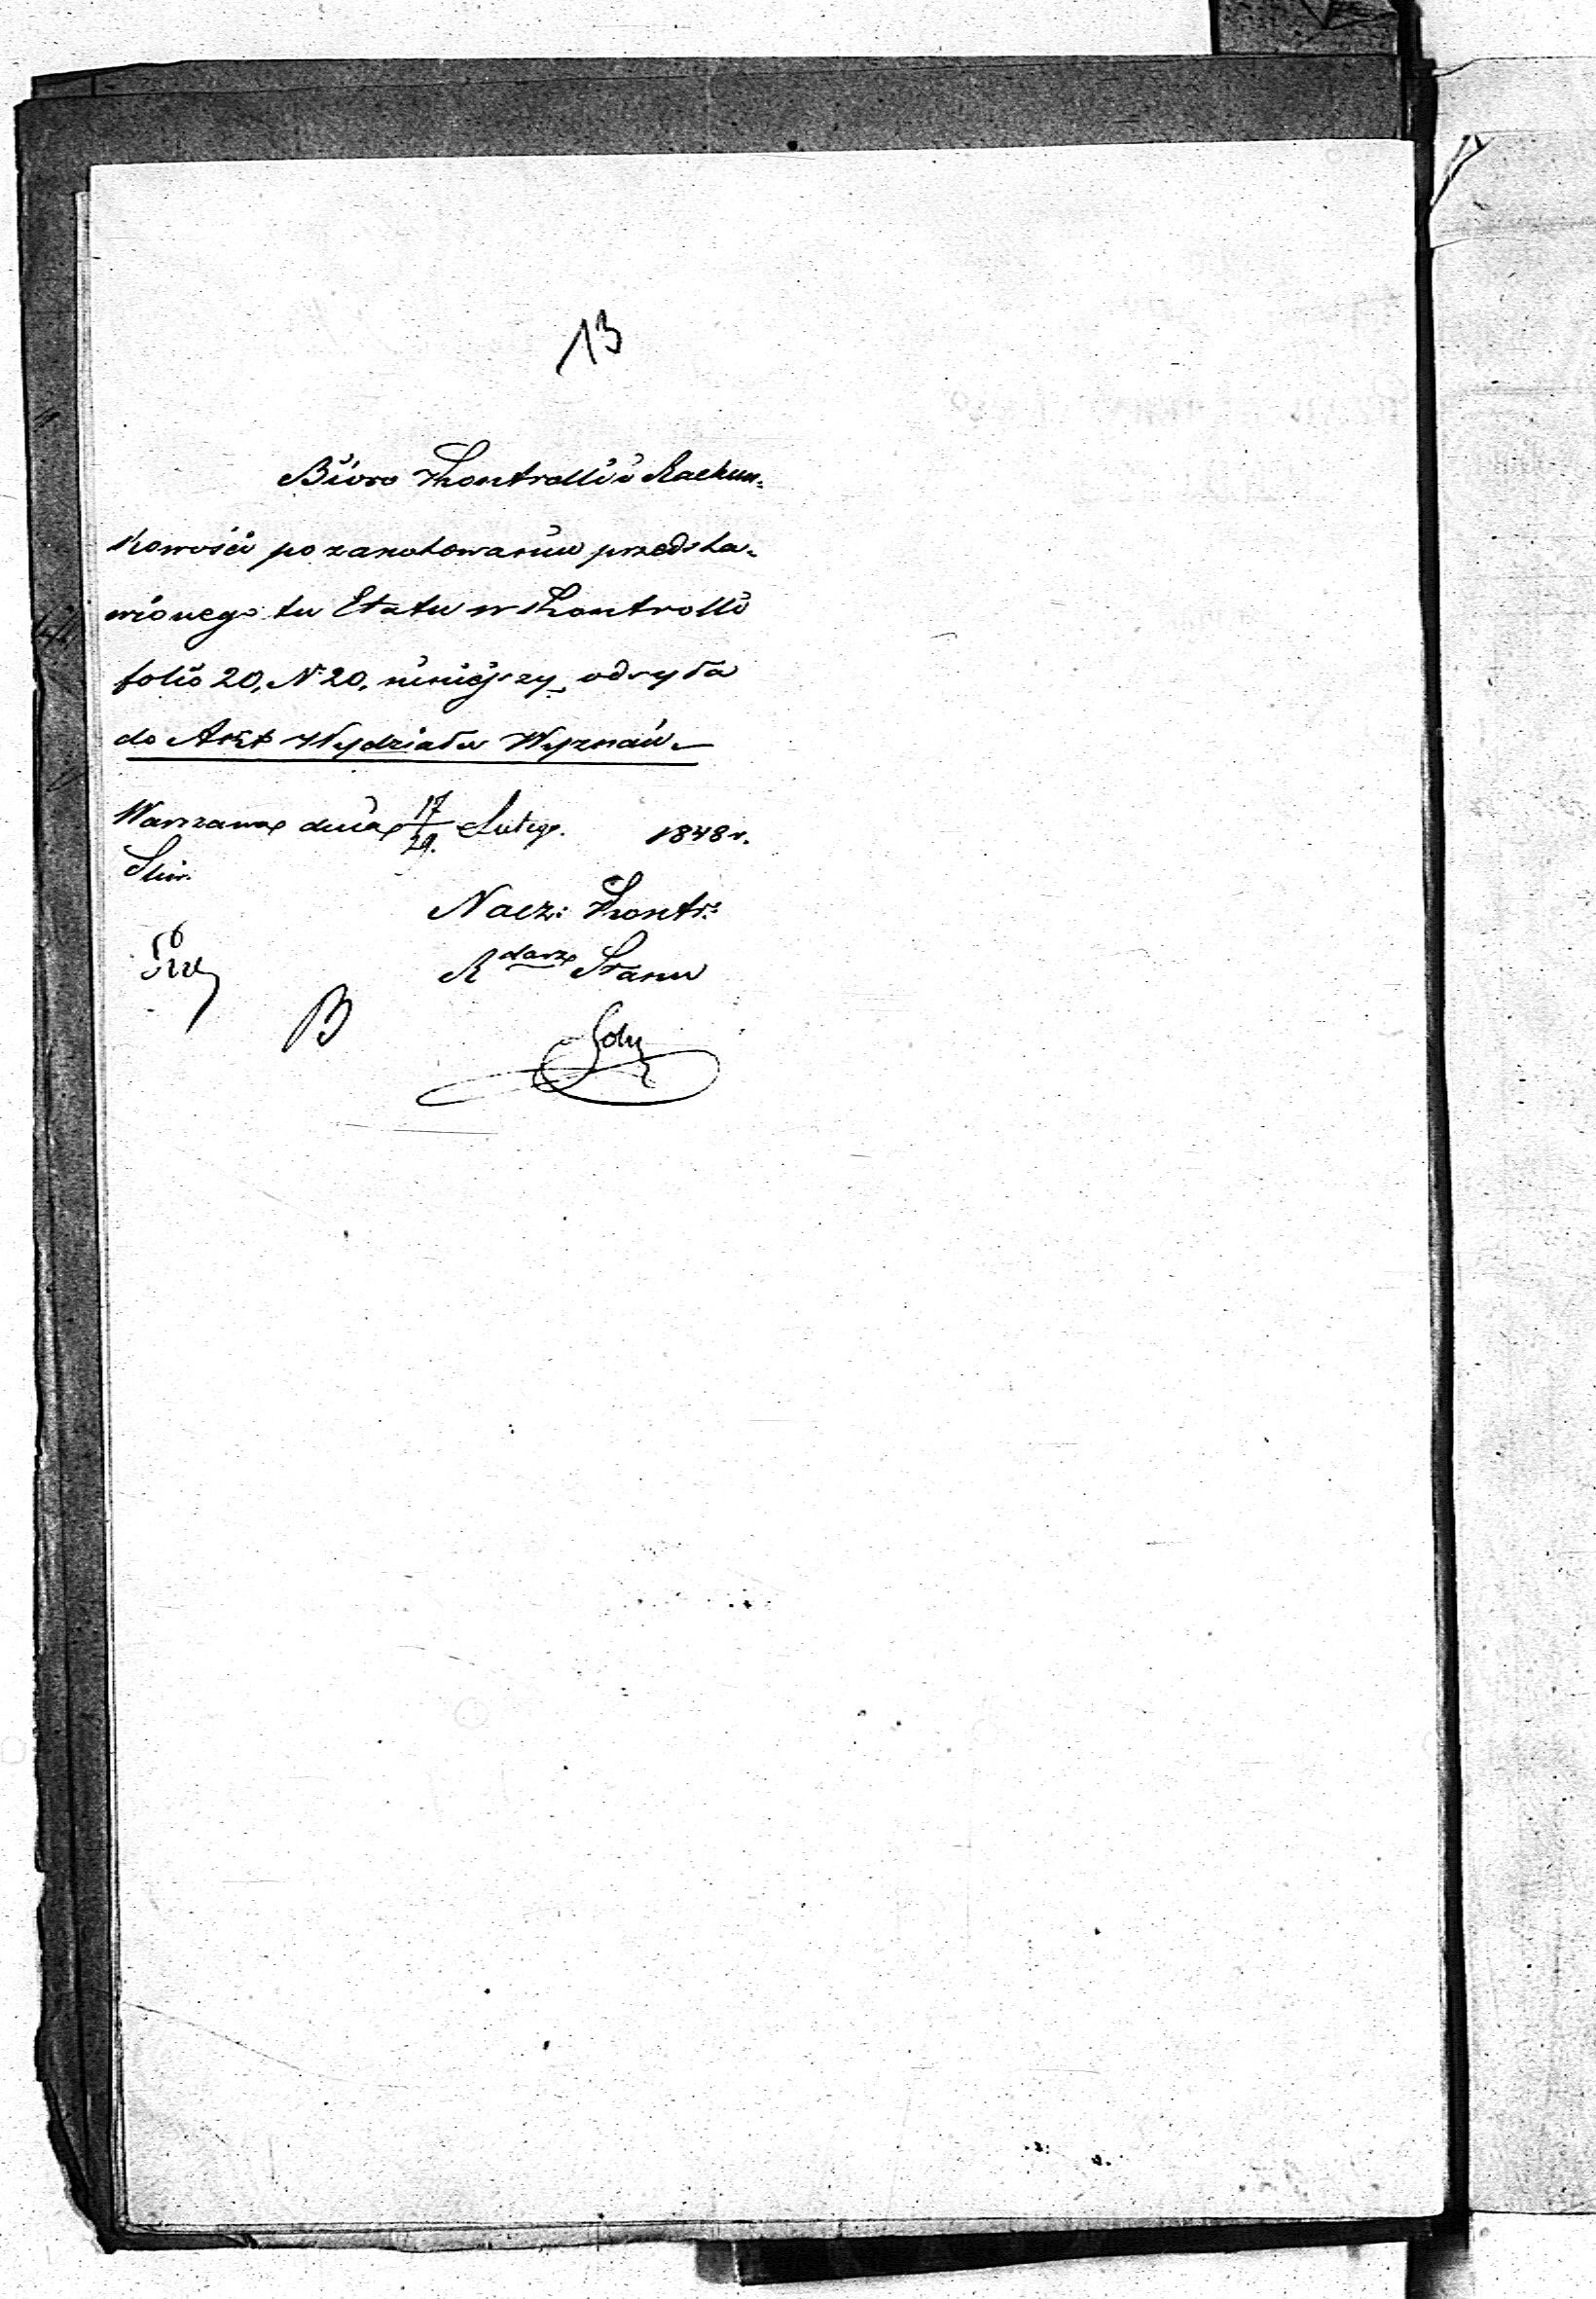 13
Bióro Kontrolli i Rachun-
kowości po zanotowaniu przedsta-
wionego tu Etatu w Kontrolli
folio 20, N 20, niniejszy odsyła
do Akt Wydziału Wyznań.
Warszawa dnia 17/29. Lutego 1848 r.
Naez: Kontr:
R darz Stanu
B